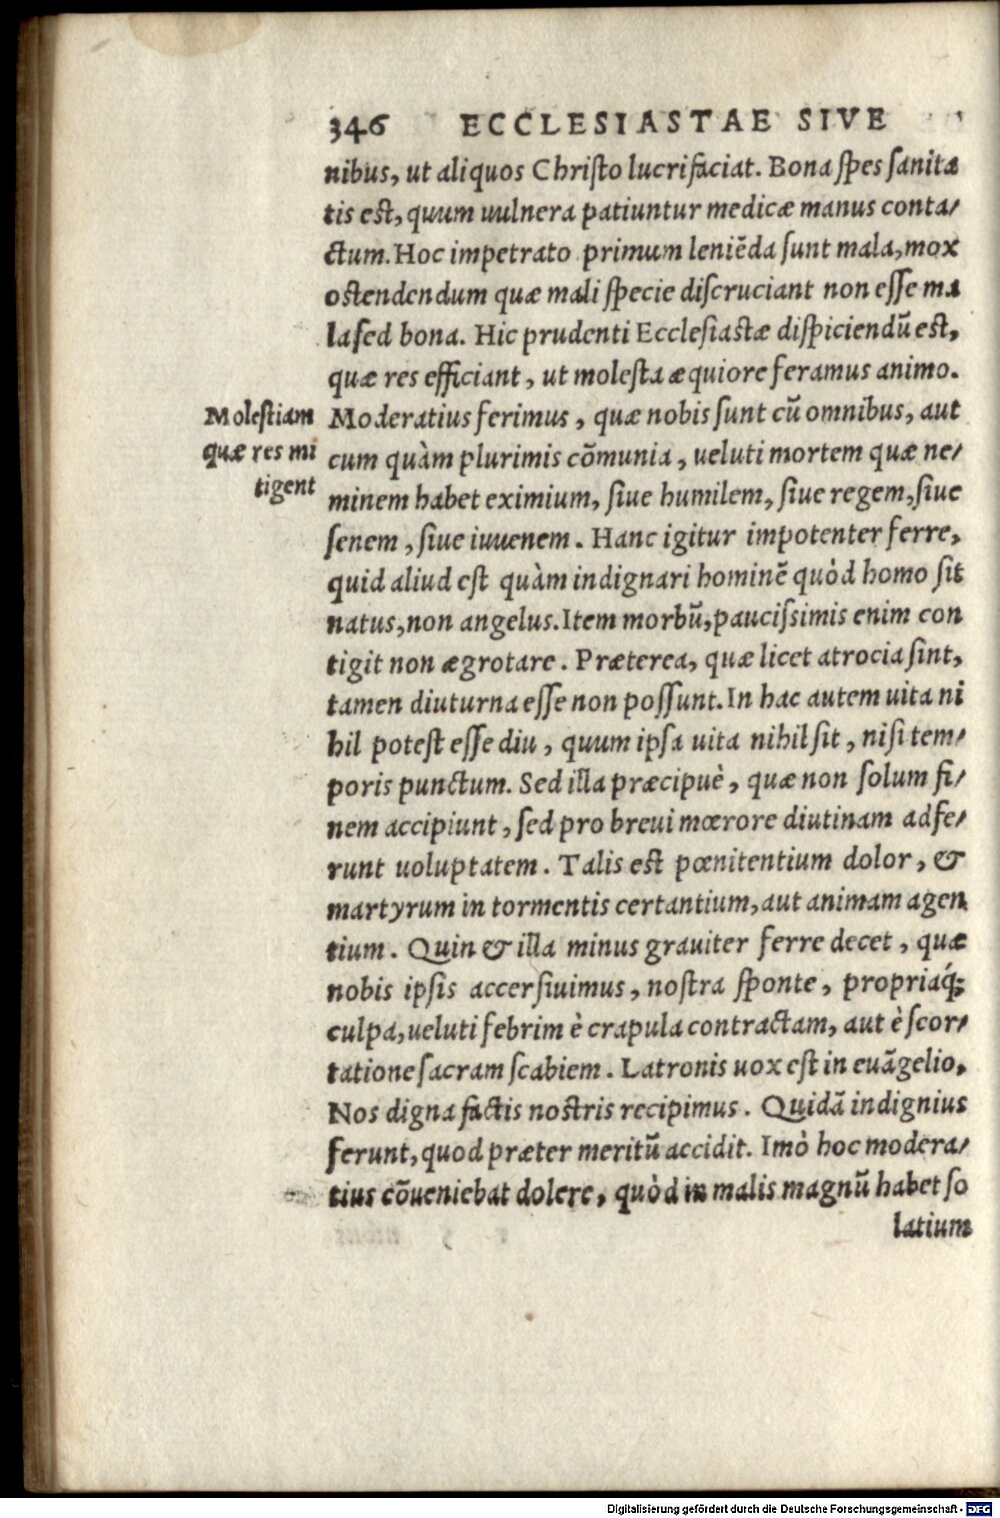 346 ECCLESIASTAE SIVE
nibus, ut aliquos Christo lucrifaciat. Bona spes sanita
tis est, quum uulnera patiuntur medicæ manus conta/
ctum. Hoc impetrato primum leniẽda sunt mala, mox
ostendendum quæ mali specie discruciant non esse ma
la sed bona. Hic prudenti Ecclesiastæ dispiciendũ est,
quæ res efficiant, ut molesta æquiore feramus animo.
Molestiam
quæ res mi
tigent
Moderatius ferimus, quæ nobis sunt cũ omnibus, aut
cum quàm plurimis cõmunia, ueluti mortem quæ ne/
minem habet eximium, siue humilem, siue regem, siue
senem, siue iuuenem. Hanc igitur impotenter ferre,
quid aliud est quàm indignari hominẽ quòd homo sit
natus, non angelus. Item morbũ, paucissimis enim con
tigit non ægrotare. Præterea, quæ licet atrocia sint,
tamen diuturna esse non possunt. In hac autem uita ni
hil potest esse diu, quum ipsa uita nihil sit, nisi tem/
poris punctum. Sed illa præcipuè, quæ non solum fi/
nem accipiunt, sed pro breui mœrore diutinam adfe/
runt uoluptatem. Talis est pœnitentium dolor, &
martyrum in tormentis certantium, aut animam agen
tium. Quin & illa minus grauiter ferre decet, quæ
nobis ipsis accersiuimus, nostra sponte, propriaq́;
culpa, ueluti febrim è crapula contractam, aut è scor/
tatione sacram scabiem. Latronis uox est in euãgelio,
Nos digna factis nostris recipimus. Quidã indignius
ferunt, quod præter meritũ accidit. Imò hoc modera/
tius cõueniebat dolere, quòd in malis magnũ habet so
latium
Digitalisierung gefördert durch die Deutsche Forschungsgemeinschaft - DFG